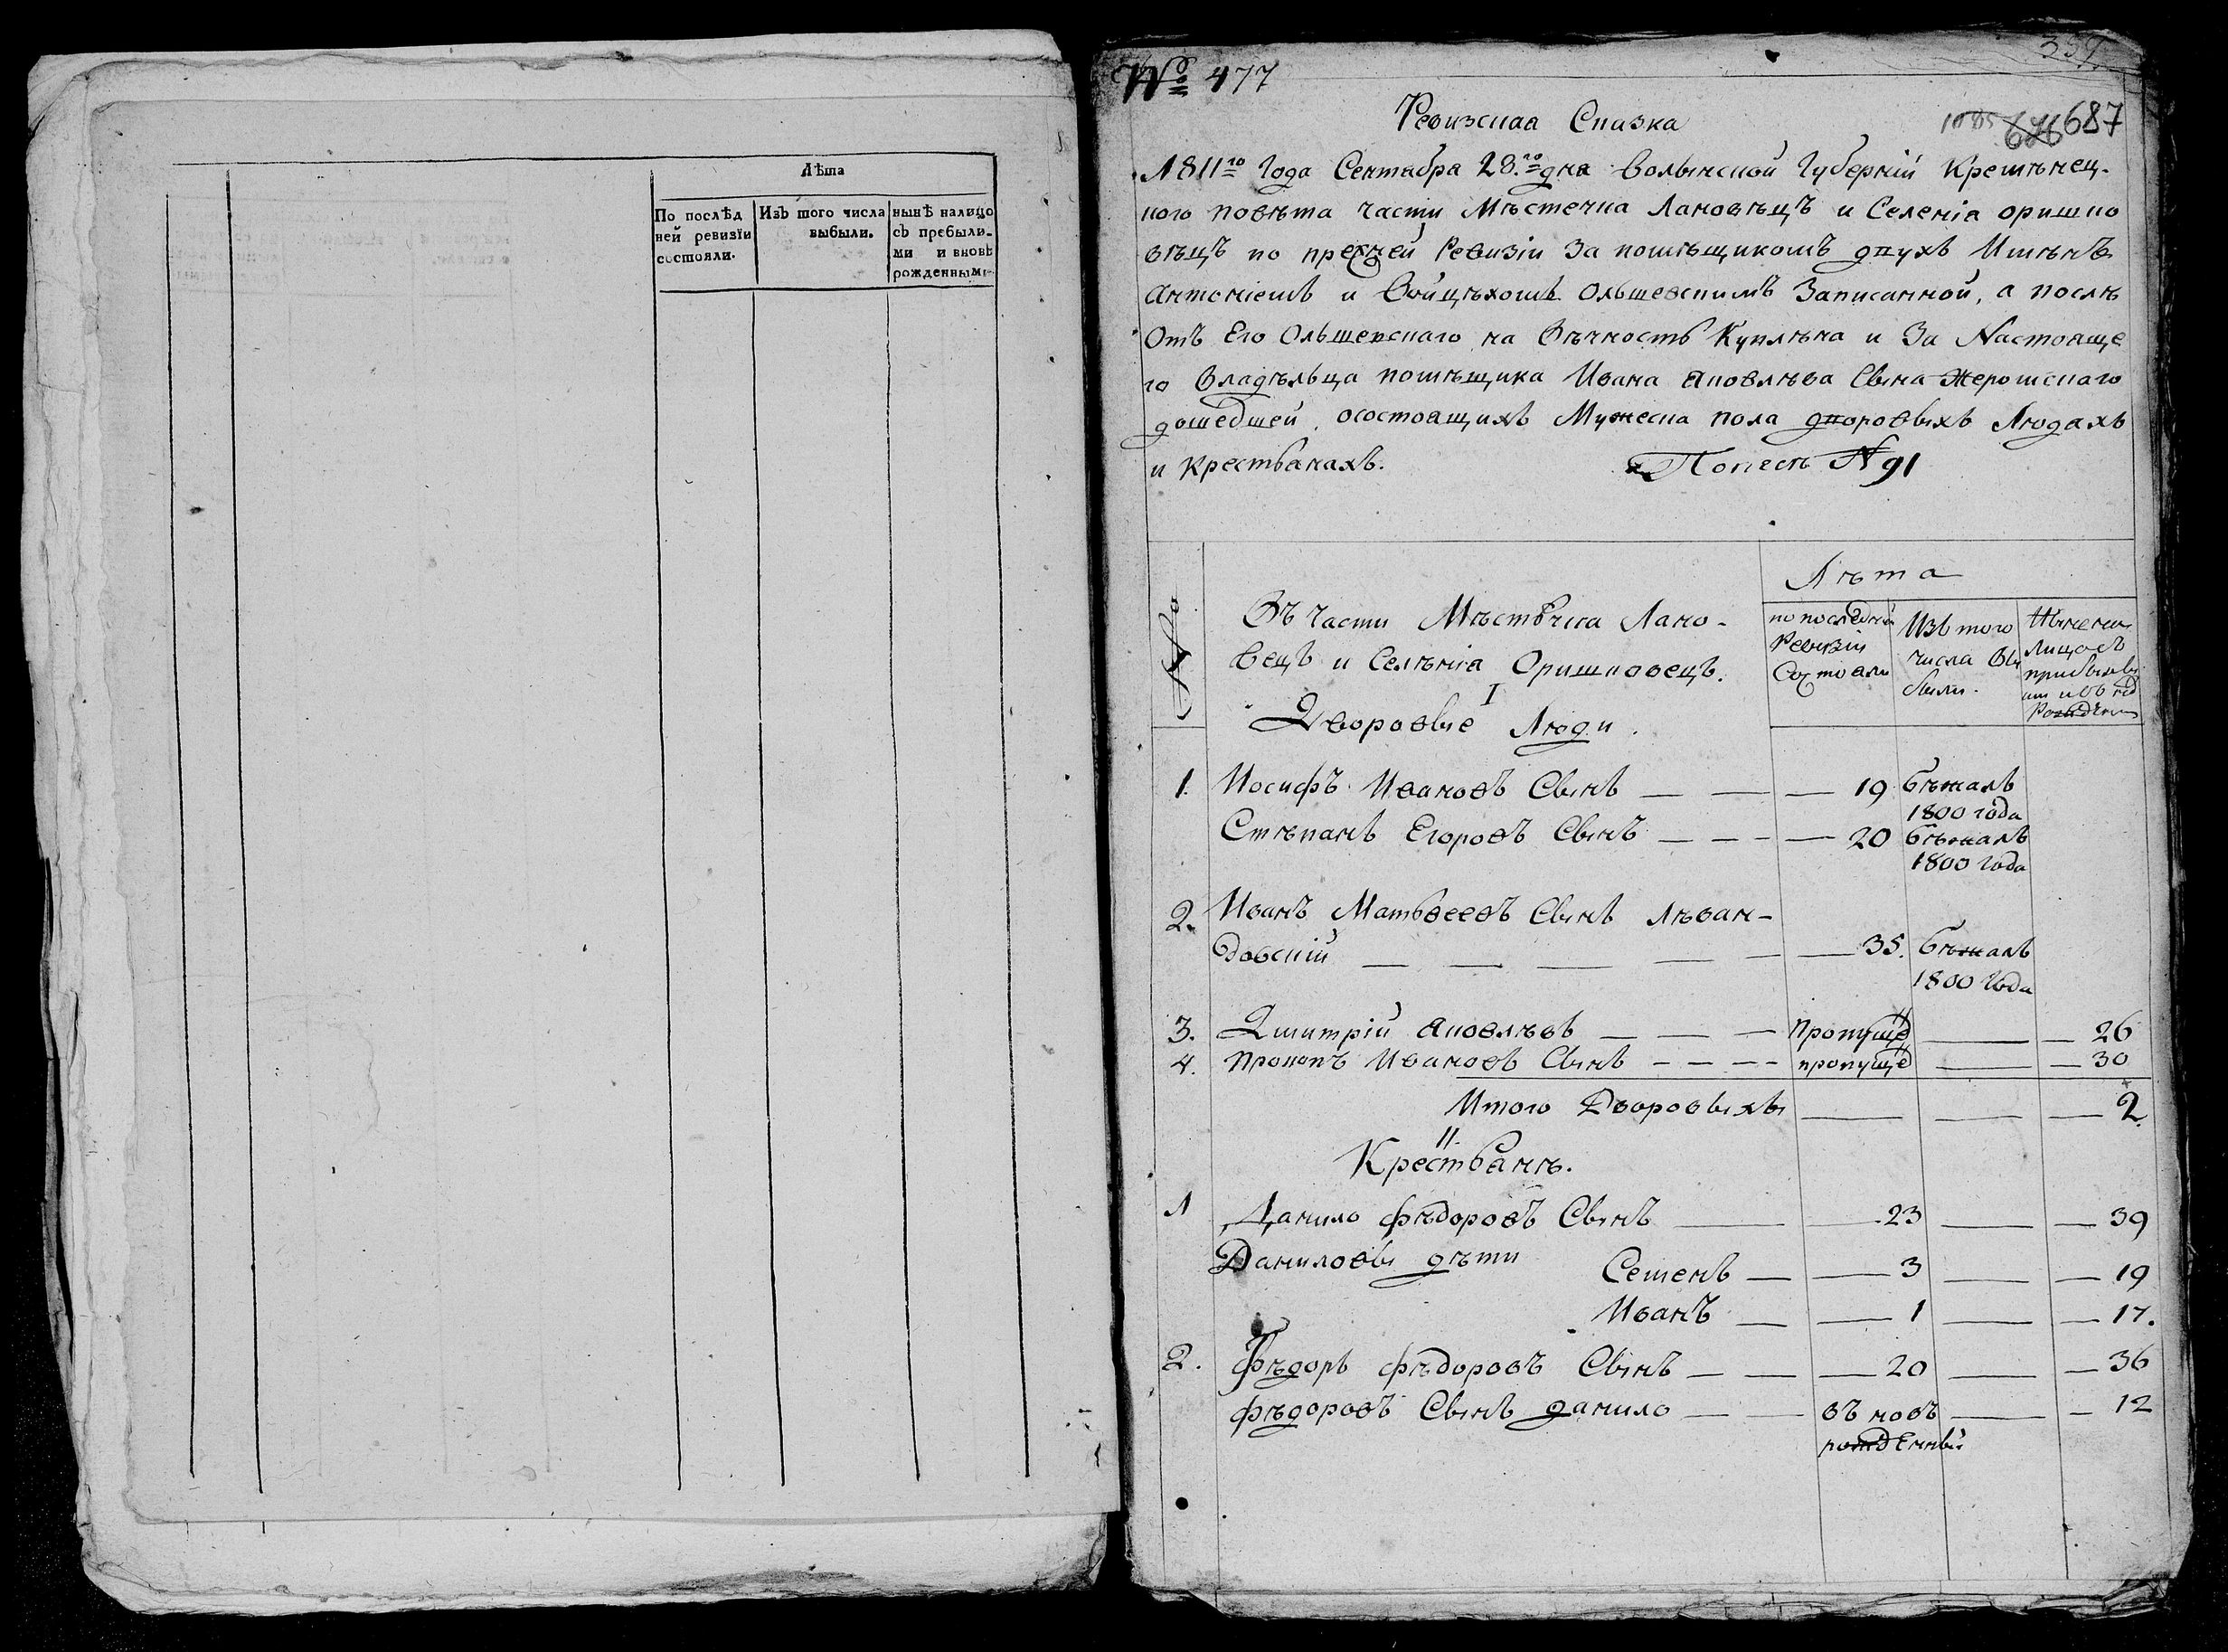 Лѣта
По послѣд
ней ревизїи
состояли.
Изъ того числа
выбыли.
нынѣ налицо
съ прєбыли-
ми и вновь
рожденными
№ 477
687
Ревизская Сказка
1811го Года Сентабра 28.го дна Волынской Губерніи Кремѣнец-
кого повѣта части Мѣстечка Лановѣцъ и Селеніа оришко
вѣцъ по прежней Ревизіи За помѣщикомъ двухъ Имѣнъ
Антоніемъ и Войцѣхомъ Ольшевскимъ Записанной, а послѣ
Отъ Его Ольшевскаго на Вѣчность Куплѣна и За Настояще
го Владѣльца помѣщика Ивана Яковлѣва Сына Жеромскаго
дошедшей, осостоящихъ Мужеска пола дворовыхъ Людахъ
и крестьанахъ.
N 91
№
Въ Части Мѣстѣчка Лано-
вецъ и Селѣніа Оришковецъ.
I
Дворовые Люди.
Лѣта
по последней
Ревизіи
Состоали
Изъ того
числа вы
были.
1. Иосифъ Ивановъ Сынъ — — — 19 бѣжалъ
1800 года
Стѣпанъ Егоровъ Сынъ — — — 20 бѣжалъ
1800 года
2. Иванъ Матвеевъ Сынъ Лѣван-
довскій — — — — — 35. бѣжалъ
1800 года
3. Дмитрій Яковлѣвъ — — — пропуще — — 26
4. Прокопъ Ивановъ Сынъ — — — — пропуще — — 30
Итого Дворовыхъ — — — 2.
II.
Крестьанѣ.
1 Данило фѣдоровъ Сынъ — — 23 — — 39
Даниловы дѣти Семенъ — — 3 — — 19
Иванъ — — 1 — — 17.
2. Фѣдоръ фѣдоровъ Сынъ — — — 20 — — 36
фѣдоровъ Сынъ данило — — въ новъ — — 12
рожденный